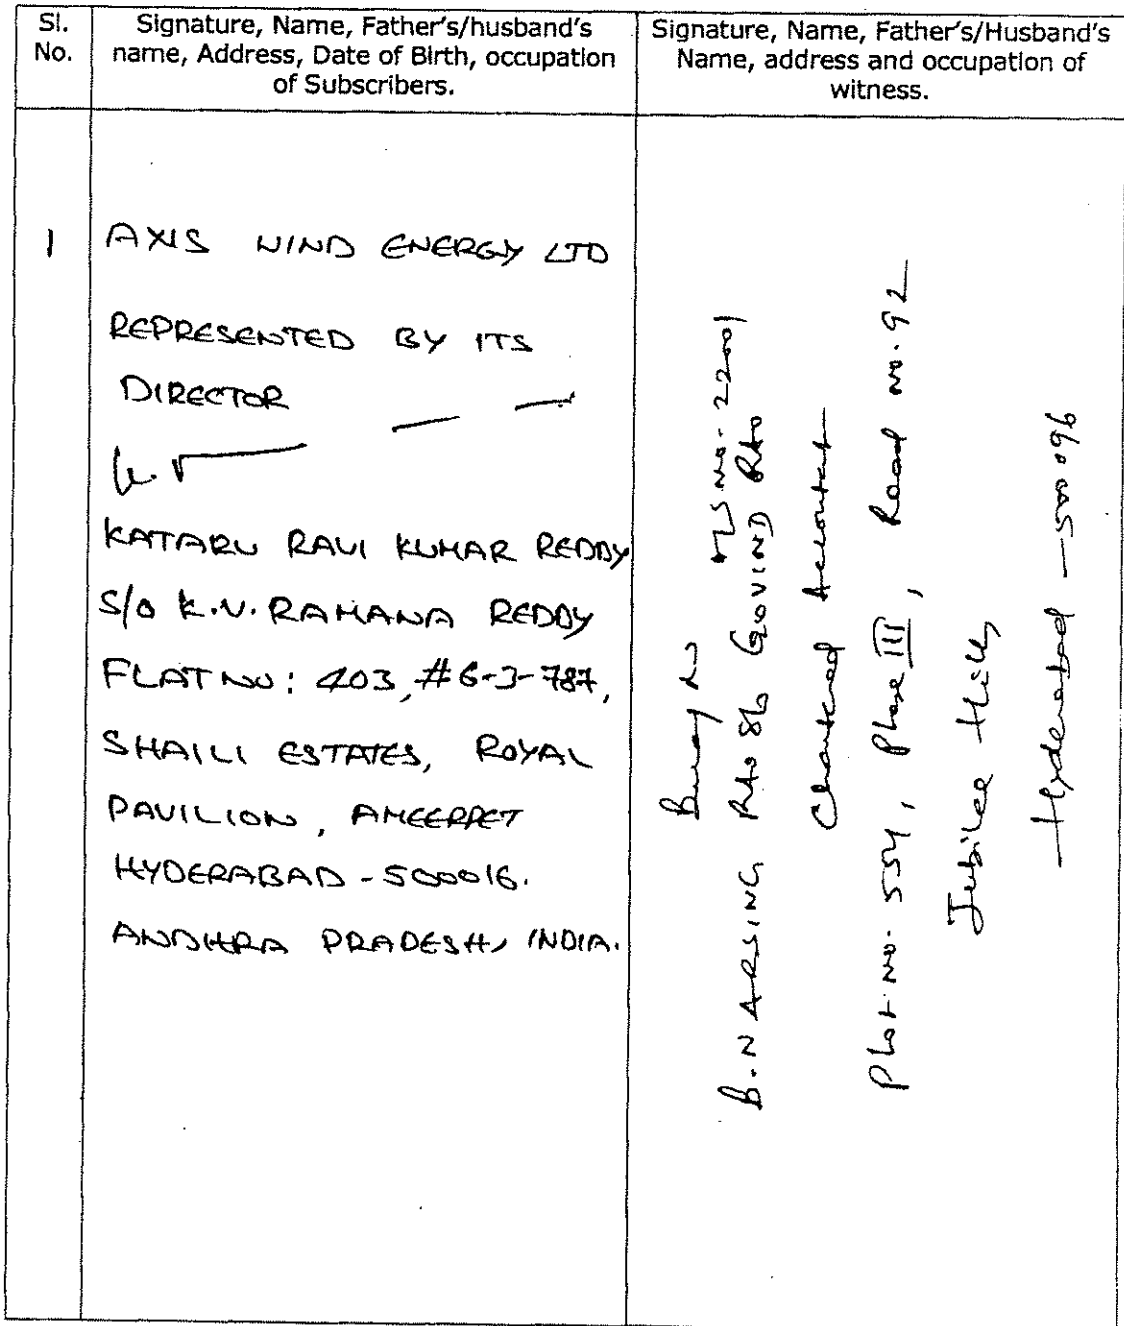 Sl.
No.
Signature, Name, Father's/husband's
name, Address, Date of Birth, occupation
of Subscribers.
Signature, Name, Father's/Husband's
Name, address and occupation of
witness.
1
AXIS WIND ENERGY LTD
REPRESENTED BY ITS
DIRECTOR
KATARU RAVI KUMAR REDDY
S/o K.V. RAMANA REDDY
FLAT NO: 403, #6-3-787,
SHAILI ESTATES, ROYAL
PAVILION, AMEERPET
HYDERABAD - 500016.
ANDHRA PRADESH, INDIA.
MS No. 22001
B. NARSING RAO S/o GOVIND RAO
Chartered Accountant
Plot No. 554, Phase III, Road No. 92
Jubilee Hills
Hyderabad - 500096